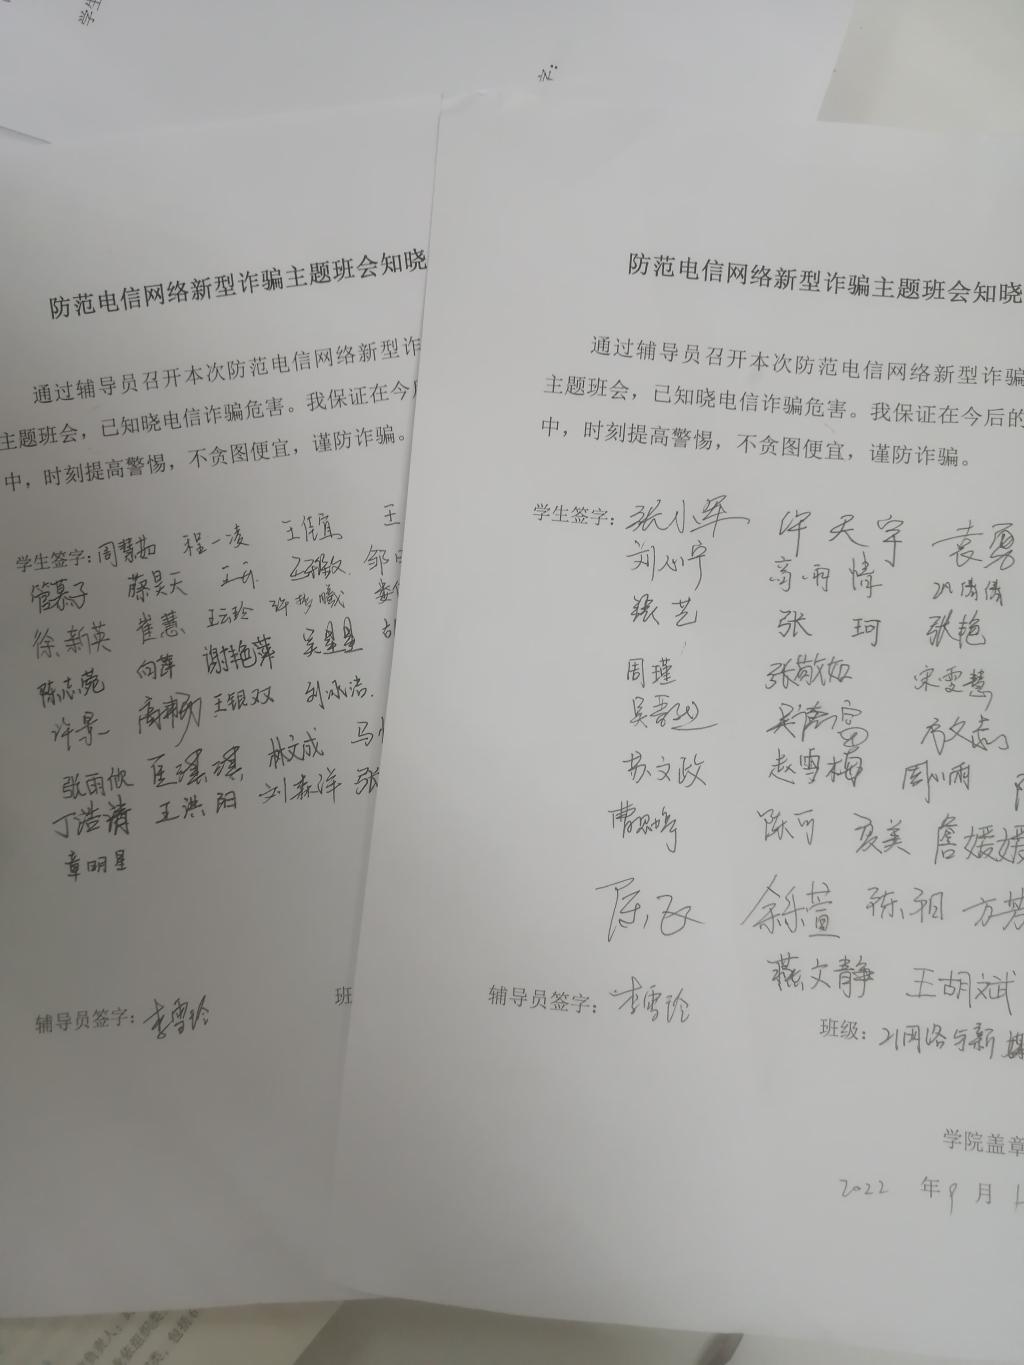 防范电信网络新型诈骗主题班会知晓
通过辅导员召开本次防范电信网络新型诈
主题班会，已知晓电信诈骗危害。我保证在今后
中，时刻提高警惕，不贪图便宜，谨防诈骗。
学生签字：周慧茹 程一凌 王佳宜 王
管慕子 蔡昊天
徐新英 崔慧 王云玲
陈志菀 向萍 谢艳萍 吴星星
许景 高畅 王银双 刘冰洁
张雨欣 匡琪琪 林文成 马
丁浩清 王洪阳 刘森洋 张
章明星
辅导员签字：李雪玲
班
防范电信网络新型诈骗主题班会知晓
通过辅导员召开本次防范电信网络新型诈骗
主题班会，已知晓电信诈骗危害。我保证在今后的
中，时刻提高警惕，不贪图便宜，谨防诈骗。
学生签字：张小军 许天宇 袁勇
刘心宇 高雨情
张艺 张珂 张艳
周瑾 张敬如 宋雯慧
方文志
苏文政 赵雪梅 周小雨
陈可 夏美 詹媛媛
余乐萱 陈相 方芳
燕文静 王胡斌
辅导员签字：李雪玲
班级：21网络与新媒
学院盖章
2022 年9月1